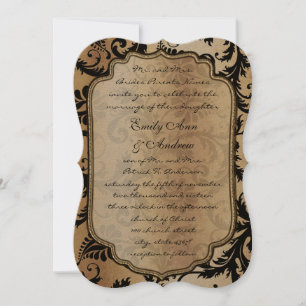 Mr. and Mrs.
Brides Parents Names
invite you to celebrate the
marriage of their daughter
Emily Ann
& Andrew
son of Mr. and Mrs.
Patrick H. Anderson
saturday the fifth of november
two thousand and sixteen
three o'clock in the afternoon
church of Christ
9909 church street
city, state 43967
reception to follow